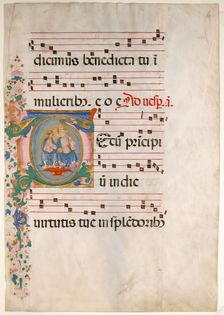 dicimus benedicta tu i
mulieribus. e o c. Ad uesp. a.
Tecum principi
um in die
uirtutis tue in splendoribus